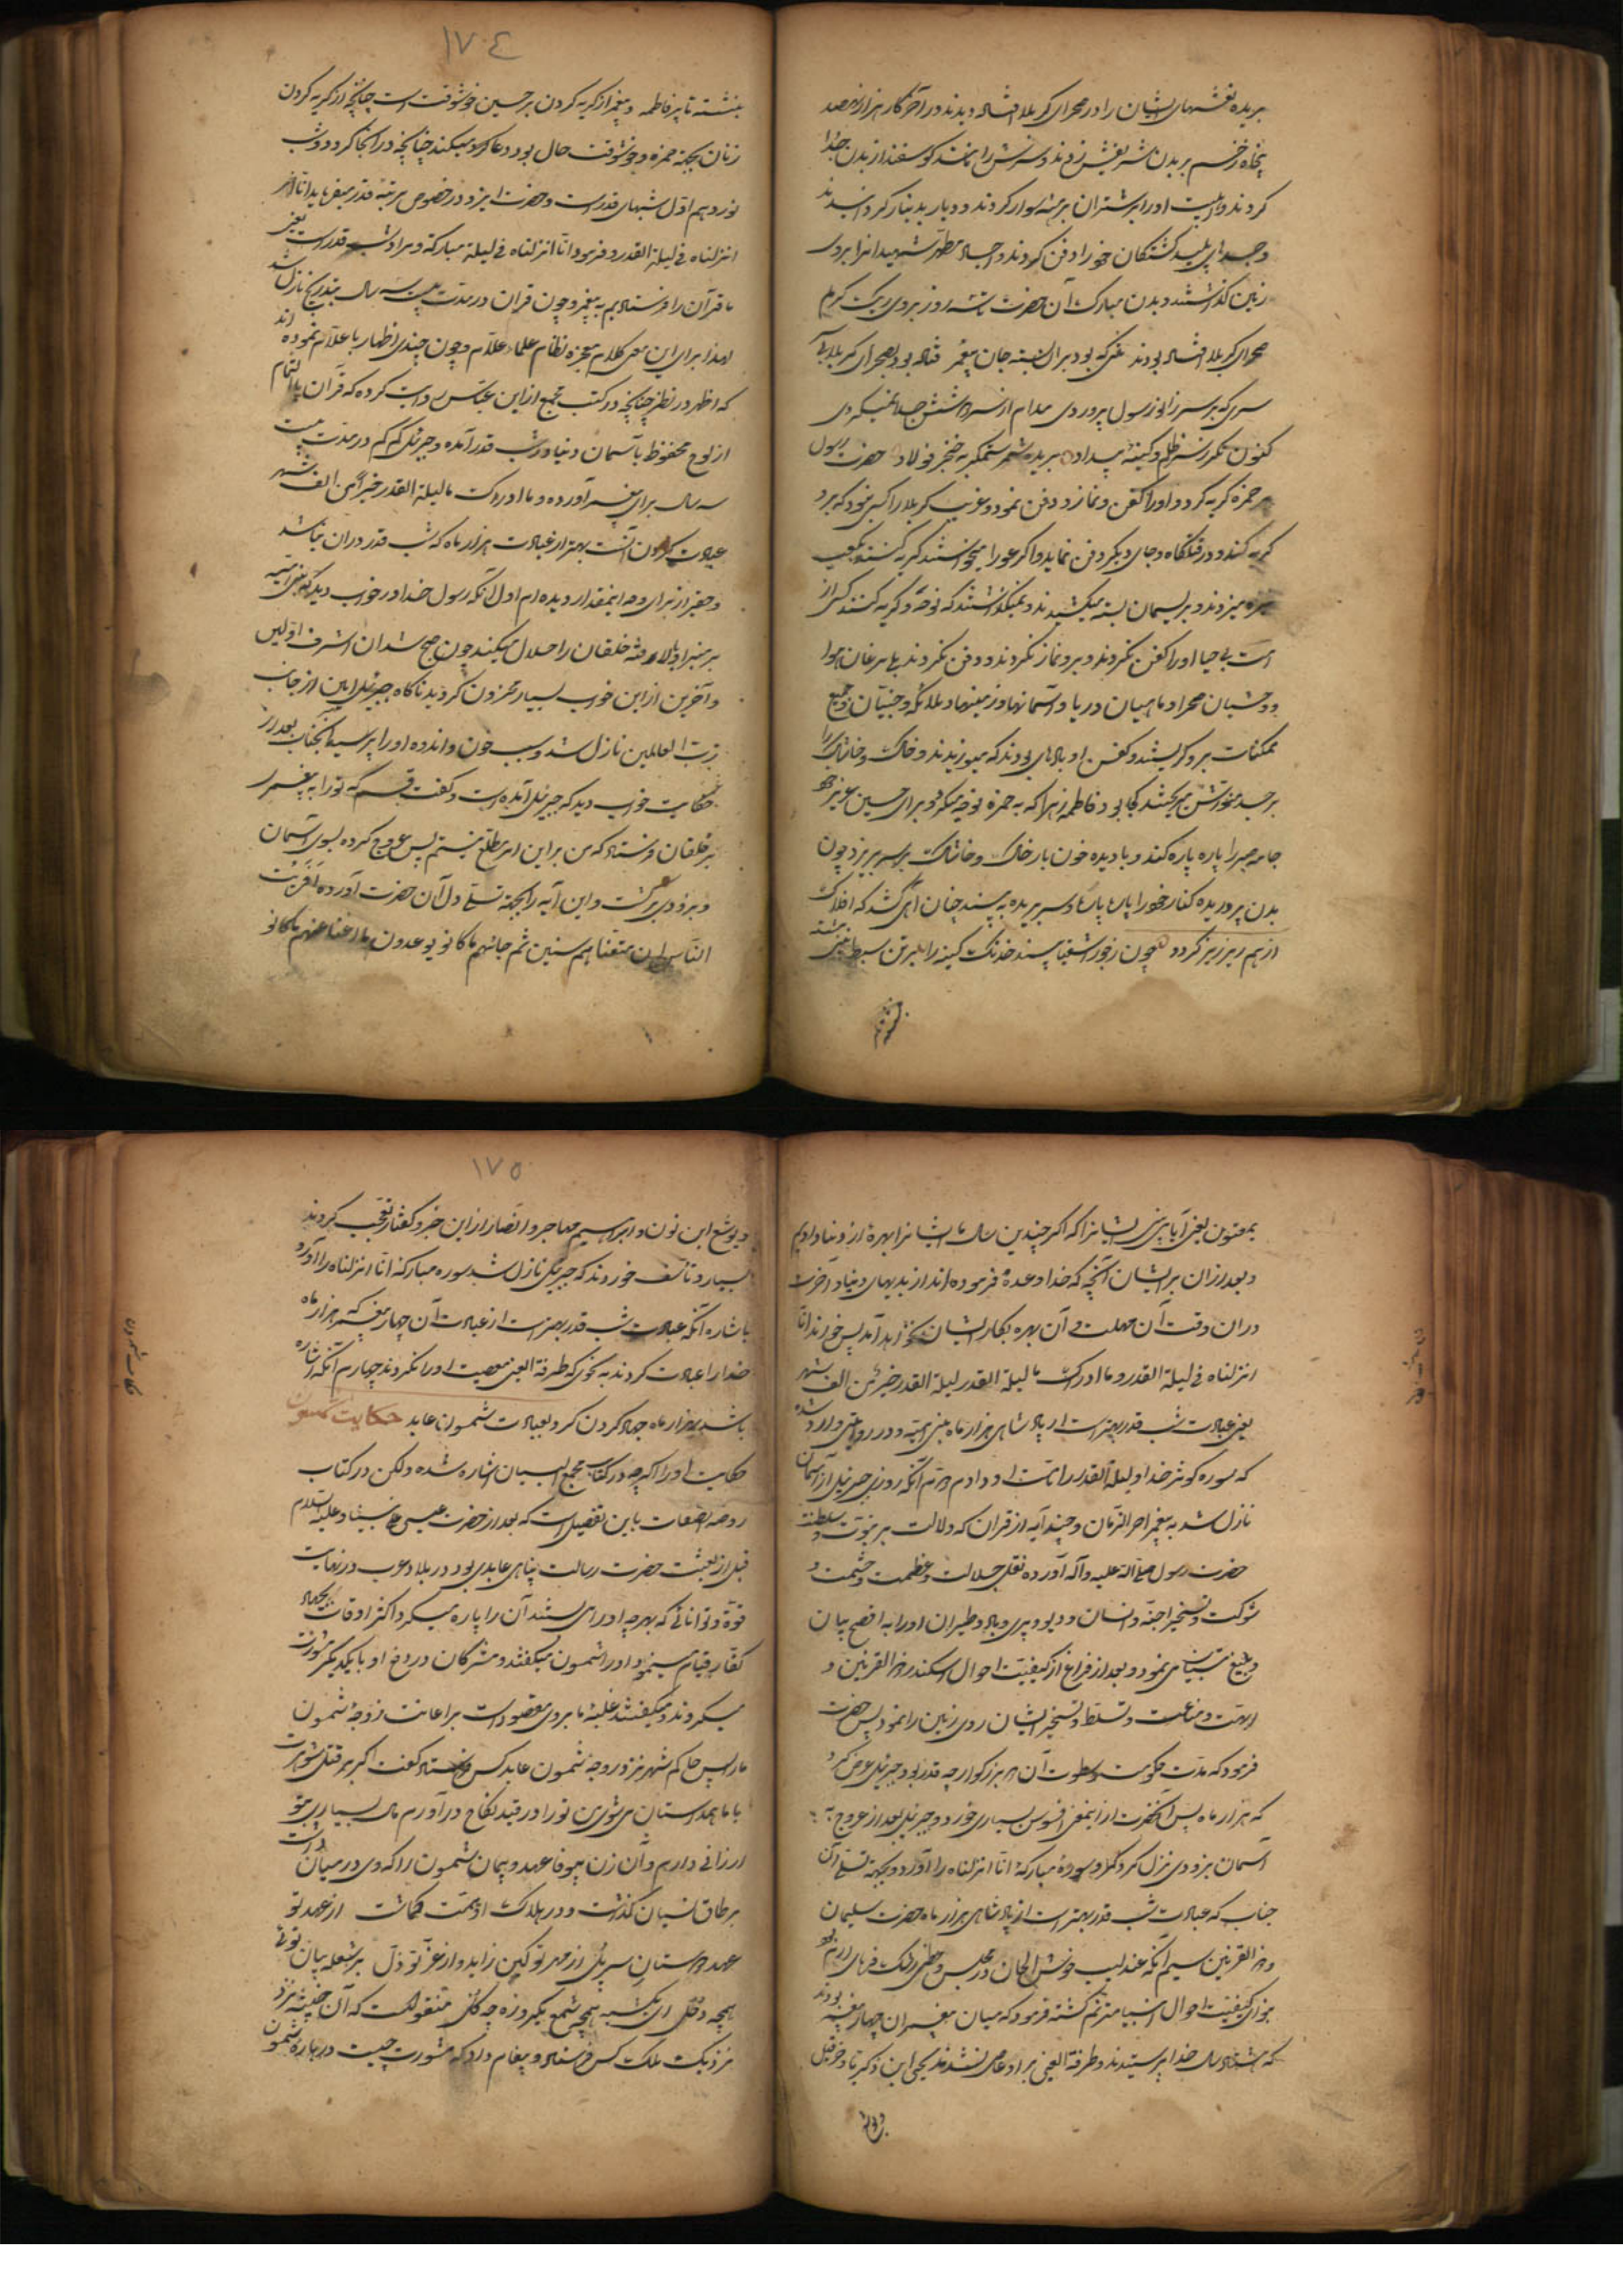 بریده نعشهای ایشان را در صحرای کربلا افتاده دیدند و در آخر کار هزار و نهصد
پنجاه زخم بر بدن شریفش زدند و سرش را مانند کوسفند از بدن جدا
کردند و اهلبیت او را بر شتران برهنه سوار کردند و دیار بدیار کردانیدند
و جسدهای پلید کشتکان خود را دفن کردند و اجساد مطهر شهیدان را بر روی
زمین کذاشتند و بدن مبارک آن حضرت سه روز بر روی ریک کرم
صحرای کربلا افتاده بودند تنی که بود بر آن بسته جان پیغمبر فتاده بود بصحرای کربلا بی
سری که بر سر زانو رسول پروردی مدام از سر دوشش جدا نمیکردی
کنون نکر ز سر ظلم و کینه بیداد بریده شمر ستمکر به خنجر فولاد حضرت رسول
بر حمزه کریه کرد و او را کفن و نماز و دفن نمود و غریب کربلا را کسی نبود که برو
کریه کند و در قتلکاه و جای دیکر دفن نماید و اکر عورا میخواستند کریه کنند بکعب
نیزه میزدند و بریسمان بسته میکشیدند و نمیکذاشتند که نوحه و کریه کنند کسی از
امت بی حیا او را کفن نکردند و برو نماز نکردند و دفن نکردند بلی مرغان هوا
و وحشیان صحرا و ماهیان دریا و آسمانها و زمینها و ملائکه و جنیان و جمیع
ممکنات برو کریستند و کفن او بادهای بودند که میوزیدند و خاک و خاشاک را
بر جسد منورش میریختند کجا بود فاطمه زهرا که به حمزه نوحه میکرد و برای حسین عزیز خود
جامه صبر را پاره پاره کند و با دیده خون بار خاک و خاشاک بر سر ریزد چون
بدن پروریده کنار خود را پاره پاره و سر بریده به بیند چنان آهی کشد که افلاک
از هم ریز ریز کردد چون ز جور اشقیا بیند خدنک کینه را بر تن سبط نبی
بنشسته تا پر فاطمه و پیغمبر از کریه کردن بر حسین خوشوقت است چنانچه از کریه کردن
زنان بجهة حمزه و خوشوقت حال بود و دعا کرد و میکند چنانچه در انجا کرد و شب
نوزدهم اول شبهای قدر است و حضرت ایزد در خصوص مرتبه قدر میفرماید انا
انزلناه فی لیلة القدر و فرمود انا انزلناه فی لیلة مبارکة و مراد شب قدر است یعنی
ما قرآن را فرستادیم به پیغمبر و چون قران در مدت بیست و سه سال بتدریج نازل شد
لهذا برای این معنی کلام معجزه نظام علماء علام وجوه چندی اظهار با علام نموده اند
که اظهر در نظر چنانچه در کتب جمیع از ابن عباس روایت کرده که قرآن بالتمام
از لوح محفوظ بآسمان دنیا در شب قدر آمده و جبرئیل کم کم در مدت بیست
سه سال برای پیغمبر آورده و ما ادریک ما لیلة القدر خیر من الف شهر
عبادت کردن آنشب بهتر از عبادت هزار ماه که شب قدر در ان نباشد
و حقیر از برای وجه اینمقدار دیده ام اول آنکه رسول خدا در خواب دید که بنی امیه
بر منبر او بالا رفته خلقان را حلال میکنند چون صبح شد ان اشرف اولین
و آخرین از این خواب بسیار محزون کردید ناکاه جبرئیل امین از جانب
رب العالمین نازل شد و سبب حزن و اندوه او را پرسید آنجناب بعد از
حکایت خواب دید که جبرئیل آمده است و کفت قسم که تو را به پیغمبری
بر خلقان فرستاده که من بر این امر مطلع نیستم پس عروج کرده بسوی آسمان
و بزودی برکشت و این آیه را بجهة تسلی دل آن حضرت آورده افرایت
الناس ان متعناهم سنین ثم جائهم ما کانوا یوعدون ما اغنا عنهم ما کانو
۱۷۴
یمتعون یعنی آیا بینی ایشان را که اکر چندین سال ما ایشان را بهره از دنیا دادیم
و بعد از ان بر ایشان آنچه که خدا وعده فرموده اند از بدیهای دنیا و آخرت
در ان وقت آن مهلت و آن بهره بکار ایشان نخواهد آمد پس خواند انا
انزلناه فی لیلة القدر و ما ادرک ما لیلة القدر لیلة القدر خیر من الف شهر
یعنی عبادت شب قدر بهتر است از پادشاهی هزار ماه بنی امیه و در روایتی وارد شده
که سوره کوثر خدا و لیلة القدر را بتو داد دویم آنکه روزی جبرئیل از آسمان
نازل شد به پیغمبر اخر الزمان و چند آیه از قران که دلالت بر نبوت و سلطنت
حضرت رسول صلی الله علیه و آله آورده نقل جلالت و عظمت و حشمت و
شوکت و تسخیر اجنه و انسان و دیو و پری و باد و طیران او را به افصح بیان
و بلیغ تبیان می نمود و بعد از فراغ از کیفیت احوال اسکندر ذو القرنین و
ابهت و مناعت و تسلط و تسخیر ایشان روی زمین را نمود پس حضرت
فرمود که مدت حکومت و سطوت آن هر بزرکوار چه قدر بود جبرئیل عرض کرد
که هزار ماه پس آنحضرت از اینمعنی افسوس بسیاری خورد و جبرئیل بعد از عروج به
آسمان بزودی نزول کرد و سوره مبارکه انا انزلناه را آورد و بجهة تسلی آن
جناب که عبادت شب قدر بهتر است از پادشاهی هزار ماه حضرت سلیمان
و ذو القرنین سیم آنکه عندلیب خوش الحان در مجلس
کیفیت احوال انبیا مترنم کشته فرمود که میان پیغمبران چهار پیغمبر بودند
که هشتاد سال خدا پرستیدند و طرفة العین بر او عاصی نشدند یحیی ابن ذکریا و حزقیل
و یوشع
۱۷۵
و یوشع ابن نون و ابراهیم مهاجر و انصار از این خبر و کفتار تعجب کردند
بسیار و تأسف خوردند که جبرئیل نازل شد سوره مبارکه انا انزلناه را آورد
باشاره آنکه عبادت شب قدر بهتر است از عبادت آن چهار پیغمبر که هزار ماه
خدا را عبادت کردند به نحوی که طرفة العین معصیت او را نکردند چهارم آنکه اشاره
باشد بهزار ماه جهاد کردن کرد و بعبادت شمعونا عابد حکایت شمعون
حکایت او را اکرچه در کتاب مجمع البیان اشاره شده ولکن در کتاب
روضه الصفا باین تفصیل است که بعد از حضرت عیسی علی نبینا و علیه السلام
قبل از بعثت حضرت رسالت پناهی عابدی بود در بلاد عرب در نهایت
قوة و توانائی که بهرچه او را می بستند آن را پاره میکرد اکثر اوقات بجهاد
کفار قیام مینمود او را شمعون میکفتند و مشرکان در دفع او با یکدیکر مشورت
میکردند و میکفتند غلبه ما بروی مقصور است بر اعانت زوجه شمعون
ما را پس حاکم شهر نزد زوجه شمعون عابد کس فرستاد کفت اکر بر قتل شوهرت
با ما همداستان می شوی من تو را در قید نکاح در آورم مال بسیار بتو
ارزانی دارم و آن زن بیوفا عهد و پیمان شمعون را که وی در میان
بر طاق نسیان کذاشت و در هلاک او همت کماشت از عهد تو
نزدیک ملک کس فرستاد و پیغام داد که مشورت چیست در باره شمعون